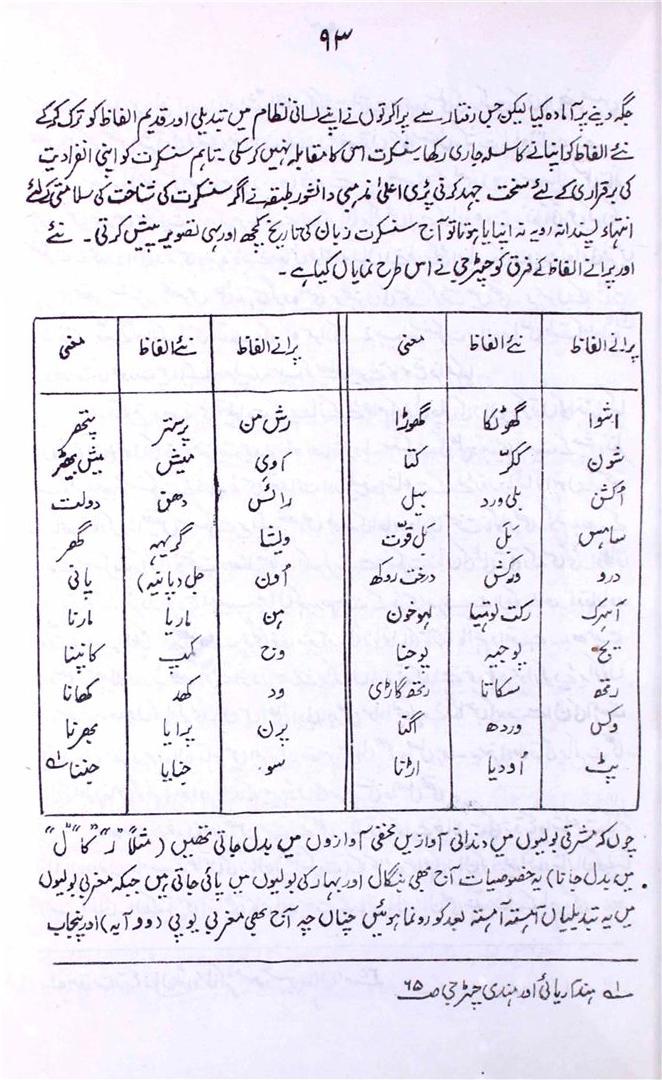 ۹۳
جگہ دینے پر آمادہ کیا لیکن جس رفتار سے پراکرتوں نے اپنے لسانی نظام میں تبدیلی اور قدیم الفاظ کو ترک کر کے
نئے الفاظ کو اپنانے کا سلسلہ جاری رکھا سنسکرت اس کا مقابلہ نہیں کر سکی۔ تاہم سنسکرت کو اپنی انفرادیت
کی برقراری کے لیے سخت جہد کرنی پڑی اعلیٰ مذہبی دانشور طبقہ نے اگر سنسکرت کی شناخت کی سلامتی کے لئے
انتہاء پسندانہ رویہ نہ اپنایا ہوتا تو آج سنسکرت زبان کی تاریخ کچھ اور ہی تصویر پیش کرتی۔ نئے
اور پرانے الفاظ کے فرق کو چیٹرجی نے اس طرح نمایاں کیا ہے۔
پرانے الفاظ نئے الفاظ معنی پرانے الفاظ نئے الفاظ معنی
اشوا گھوٹکا گھوڑا رش من پرستر پتھر
شون ککر کتا اوی میش
اکشن بلی ورد بیل رائس دھن دولت
ساہس بل بل قوت ویشا گریہہ گھر
درو ورکش درخت روکھ اون جل (پانیہ) پانی
اسرک رکت لوہیا لہو خون ہن مارنا
یج پوجیہ پوجنا وزح کمپ کانپنا
رتھ سکاتا رتھ گاڑی ود کھد کھانا
وکس وردھ اگنا پرن بھرنا
پٹ اودیا اڑنا سو جنایا جننا ؎۱
چوں کہ مشرقی بولیوں میں دندانی آوازیں مخفی آوازوں میں بدل جاتی تھیں (مثلاً "ر" کا "ل"
میں بدل جانا) یہ خصوصیات آج بھی بنگال اور بہار کی بولیوں میں پائی جاتی ہیں جبکہ مغربی بولیوں
میں یہ تبدیلیاں آہستہ آہستہ بعد کو رونما ہوئیں چناں چہ آج بھی مغربی یوپی (دوآبہ) اور پنجاب
؎۱ ہند آریائی اور ہندی چیٹرجی ص ۶۵